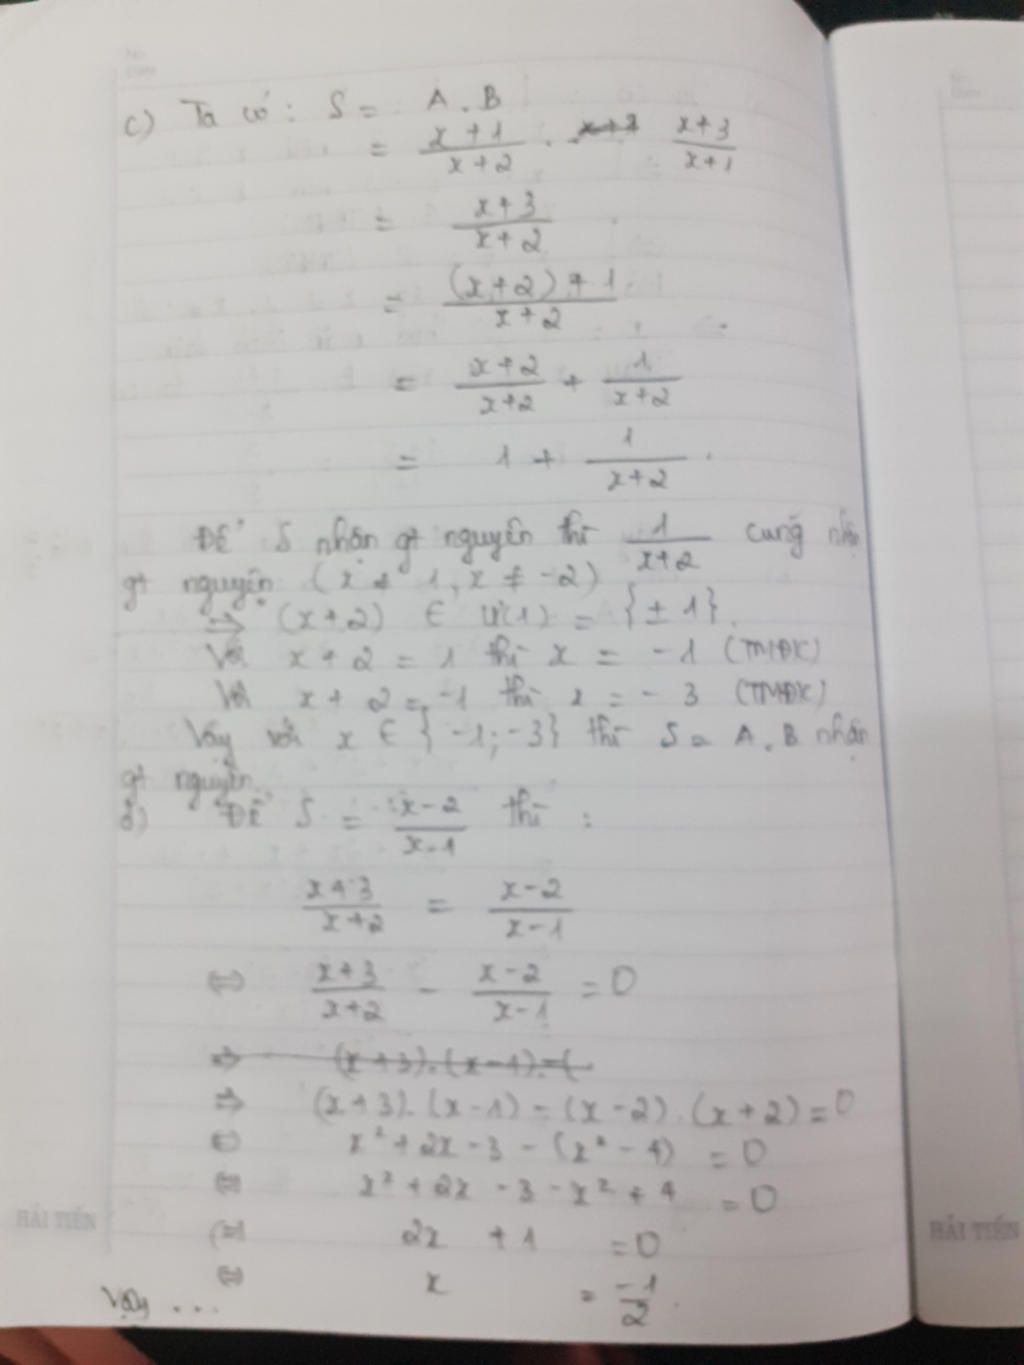 c) Ta có: S = A . B
= \frac{x+1}{x+2} . \frac{x+3}{x+1}
= \frac{x+3}{x+2}
= \frac{(x+2)+1}{x+2}
= \frac{x+2}{x+2} + \frac{1}{x+2}
= 1 + \frac{1}{x+2}.
Để S nhận gt nguyên thì \frac{1}{x+2} cũng nhận
gt nguyên (x ≠ 1, x ≠ -2)
⇒ (x+2) ∈ Ư(1) = {± 1}.
Với x + 2 = 1 thì x = -1 (TMĐK)
Với x + 2 = -1 thì x = -3 (TMĐK)
Vậy với x ∈ {-1; -3} thì S = A . B nhận
gt nguyên.
Để S = \frac{x-2}{x-1} thì :
\frac{x+3}{x+2} = \frac{x-2}{x-1}
⇔ \frac{x+3}{x+2} - \frac{x-2}{x-1} = 0
⇒ (x+3).(x-1) = (
⇒ (x+3).(x-1) - (x-2).(x+2) = 0
⇔ x² + 2x - 3 - (x² - 4) = 0
⇔ x² + 2x - 3 - x² + 4 = 0
⇔ 2x + 1 = 0
⇔ x = \frac{-1}{2}.
Vậy ...
HẢI TIẾN
HẢI TIẾN